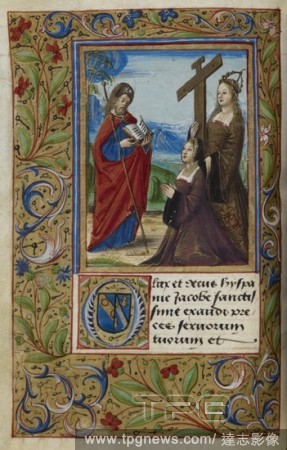 lux et decus hyspa
nie Jacobe sanctis
sime exaudi pre
ces servorum
tuorum et
TPG
www.tpgnews.com/ 達志影像